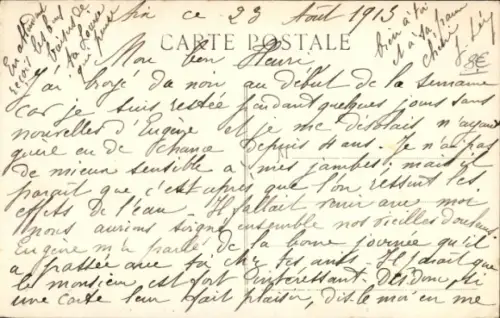 ce 23 Août 1913
CARTE POSTALE
Mon bon Henri
J'ai broyé du noir au début de la semaine
car je suis restée pendant quelques jours sans
nouvelles d'Eugène et je me désolais n'ayant
guère eu de chance depuis 4 ans. Je n'ai pas
de mieux sensible à mes jambes, mais il
paraît que c'est après que l'on ressent les
effets de l'eau – Il fallait venir avec moi
nous aurions soigné ensemble nos vieilles douleurs
Eugène m'a parlé de la bonne journée qu'il
a passée avec toi chez tes amis – Il paraît que
le monsieur est fort intéressant. Dis donc, si
une carte leur fait plaisir, dis le moi en me
En attendant
reçois les bons
baisers de
ta
bien à toi
et à ta
chérie
8€